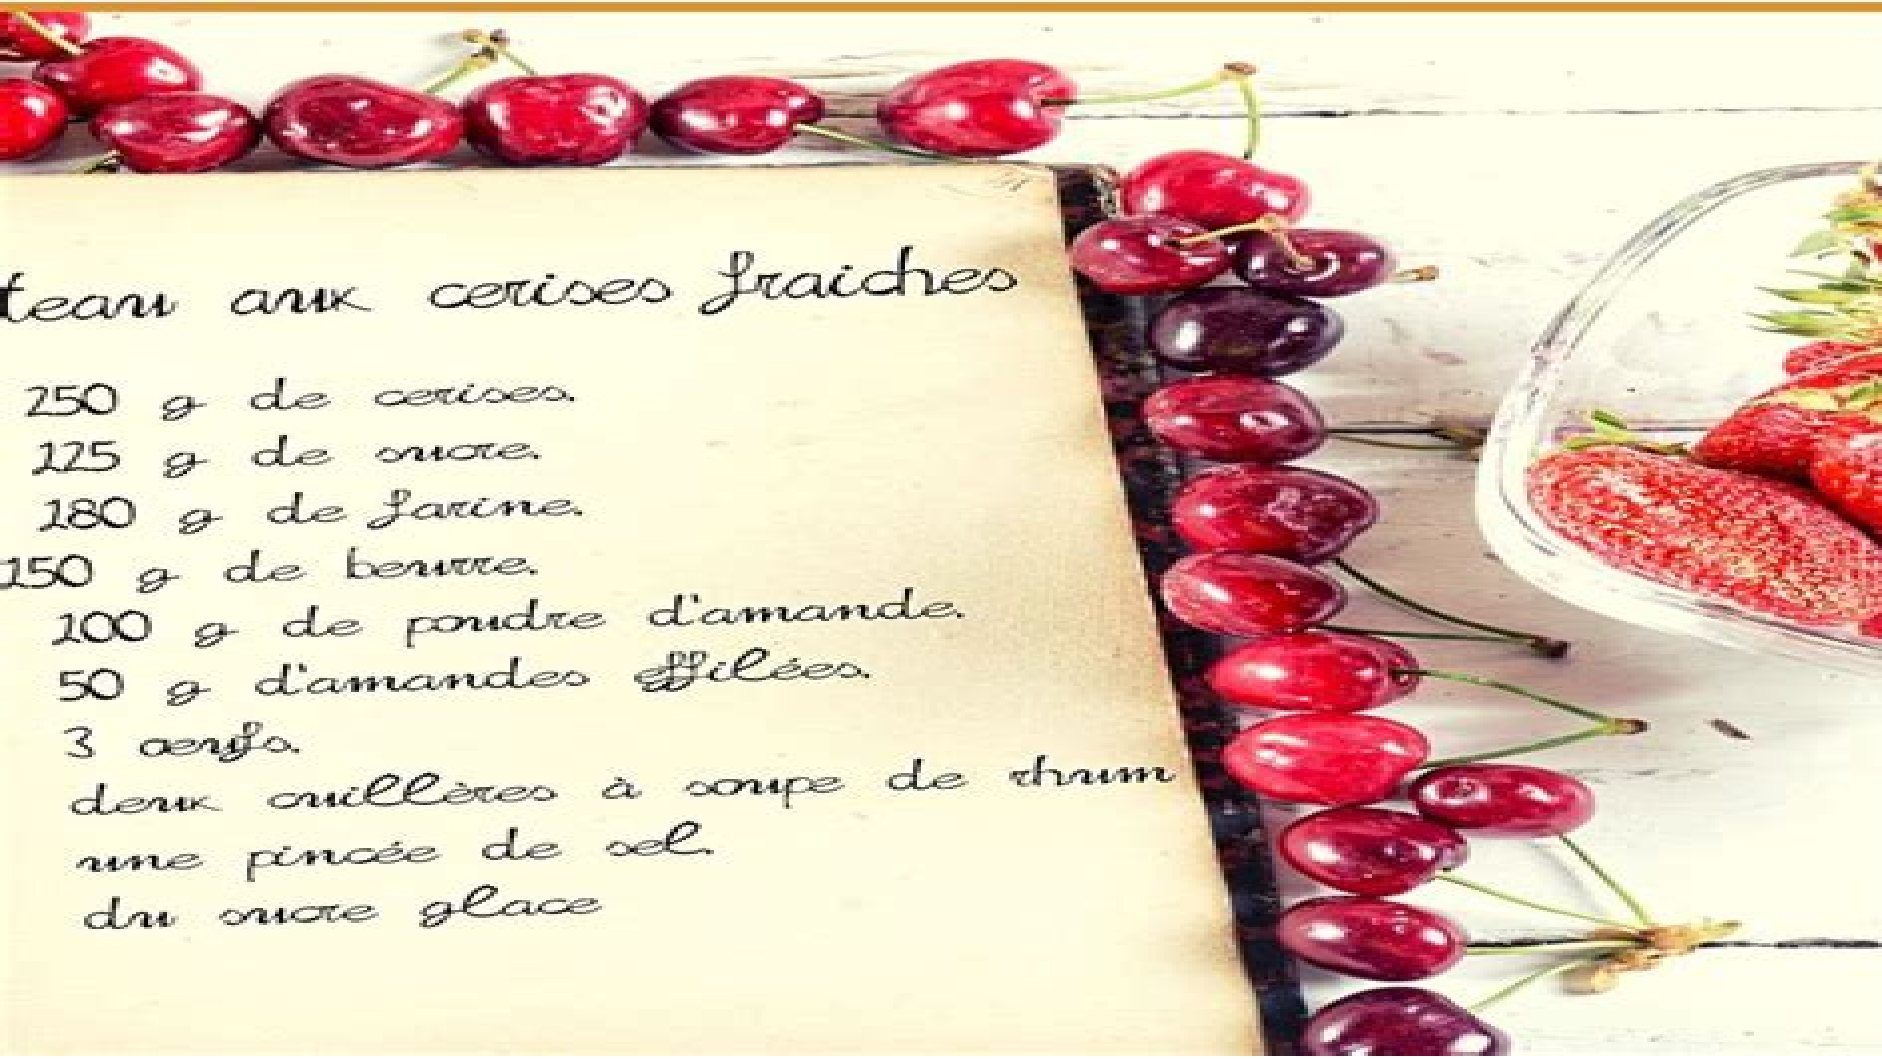 teau aux cerises fraiches
250 g de cerises.
125 g de sucre.
180 g de farine.
150 g de beurre.
100 g de poudre d'amande.
50 g d'amandes effilées.
3 œufs.
deux cuillères à soupe de rhum
une pincée de sel.
du sucre glace